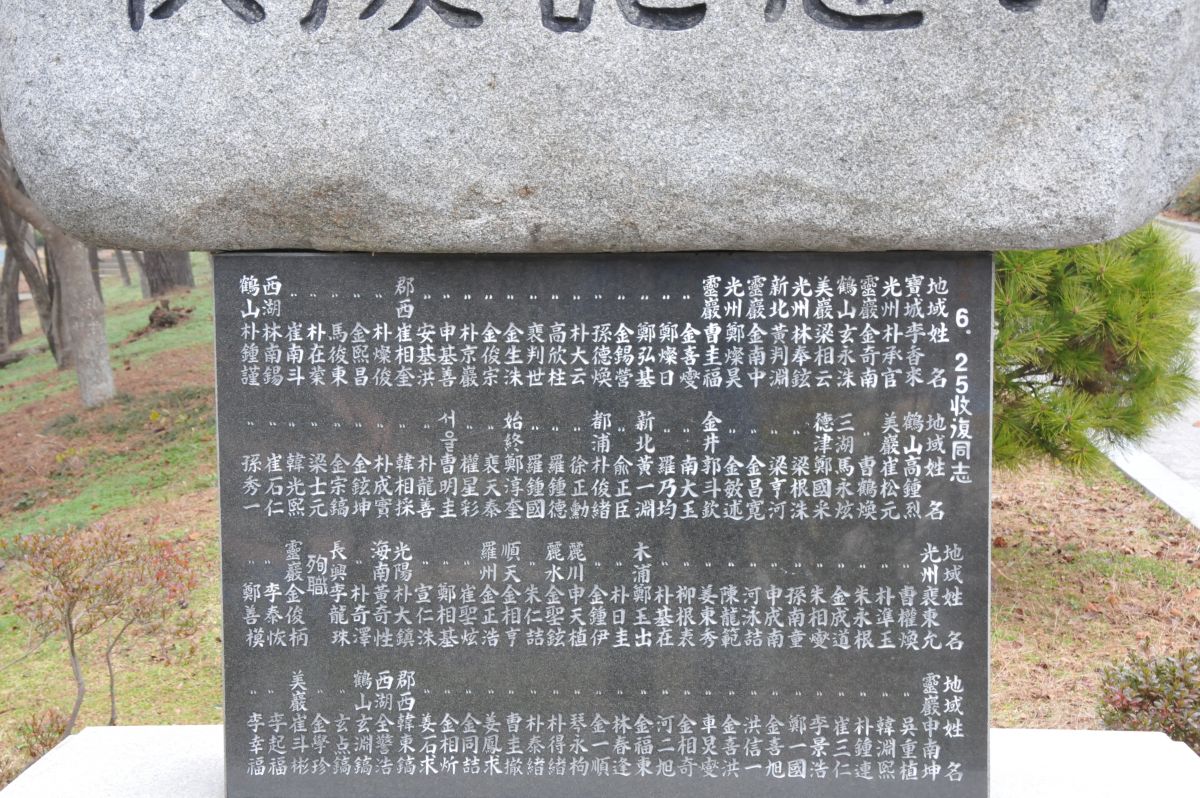 6. 25收復同志
地域姓 名
寶城李香來
光州朴承官
靈巖金奇南
鶴山玄永洙
美巖梁相云
光州林奉鉉
新北黃判淵
靈巖金南中
光州鄭燦昊
靈巖曹圭福
〃 金喜燮
〃 鄭燦日
〃 鄭弘基
〃 金錫營
〃 孫德煥
〃 朴大云
〃 高欣柱
〃 裵判世
〃 金生洙
〃 金俊宗
〃 朴京巖
〃 申基善
〃 安基洪
郡西崔相奎
〃 朴燦俊
〃 金熙昌
〃 馬俊東
〃 朴在業
〃 崔南斗
西湖林南錫
鶴山朴鍾謹
地域姓 名
鶴山高鍾烈
美巖崔松元
〃 曹鶴煥
三湖馬永炫
德津鄭國米
〃 梁根洙
〃 梁亨河
〃 金昌寬
〃 金敏述
金井郭斗欽
〃 南大玉
〃 羅乃均
新北黃一淵
〃 俞正臣
都浦朴俊緖
〃 徐正勳
〃 羅鍾德
〃 羅鍾國
始終鄭淳奎
〃 裵天奉
〃 權星彩
서울曹明圭
〃 朴龍善
〃 韓相採
〃 朴成實
〃 金鉉坤
〃 金宗鎬
〃 梁士元
〃 韓光熙
〃 崔石仁
〃 孫秀一
地域姓 名
光州裵東允
〃 曹權煥
〃 朴準玉
〃 朱永根
〃 金成道
〃 朱相燮
〃 孫南童
〃 申成南
〃 河泳詰
〃 陳龍範
〃 姜東秀
〃 柳根表
〃 朴基在
木浦鄭玉出
〃 朴日圭
〃 金鍾伊
麗川申天植
麗水金聖鉉
〃 朱仁喆
順天金相亨
羅州金正浩
〃 崔聖炫
〃 鄭相基
〃 宣仁洙
光陽朴大鎮
海南黃奇性
〃 朴奇澤
長興李龍珠
殉職
靈巖金俊柄
〃 李奉恢
〃 鄭善模
地域姓 名
靈巖申南坤
〃 吳重植
〃 韓淵熙
〃 朴鍾連
〃 崔三仁
〃 李景浩
〃 鄭一國
〃 金喜旭
〃 洪信一
〃 金喜洪
〃 車炅燮
〃 金相奇
〃 河二旭
〃 金福東
〃 林春逢
〃 金一順
〃 琴永枸
〃 朴得緖
〃 朴泰緖
〃 曹圭撤
〃 姜鳳求
〃 金同喆
〃 金相炘
〃 姜石求
郡西韓東鎬
西湖全謷浩
鶴山玄淵鎬
〃 玄点鎬
〃 金學珍
美巖崔斗彬
〃 李起福
〃 李幸福